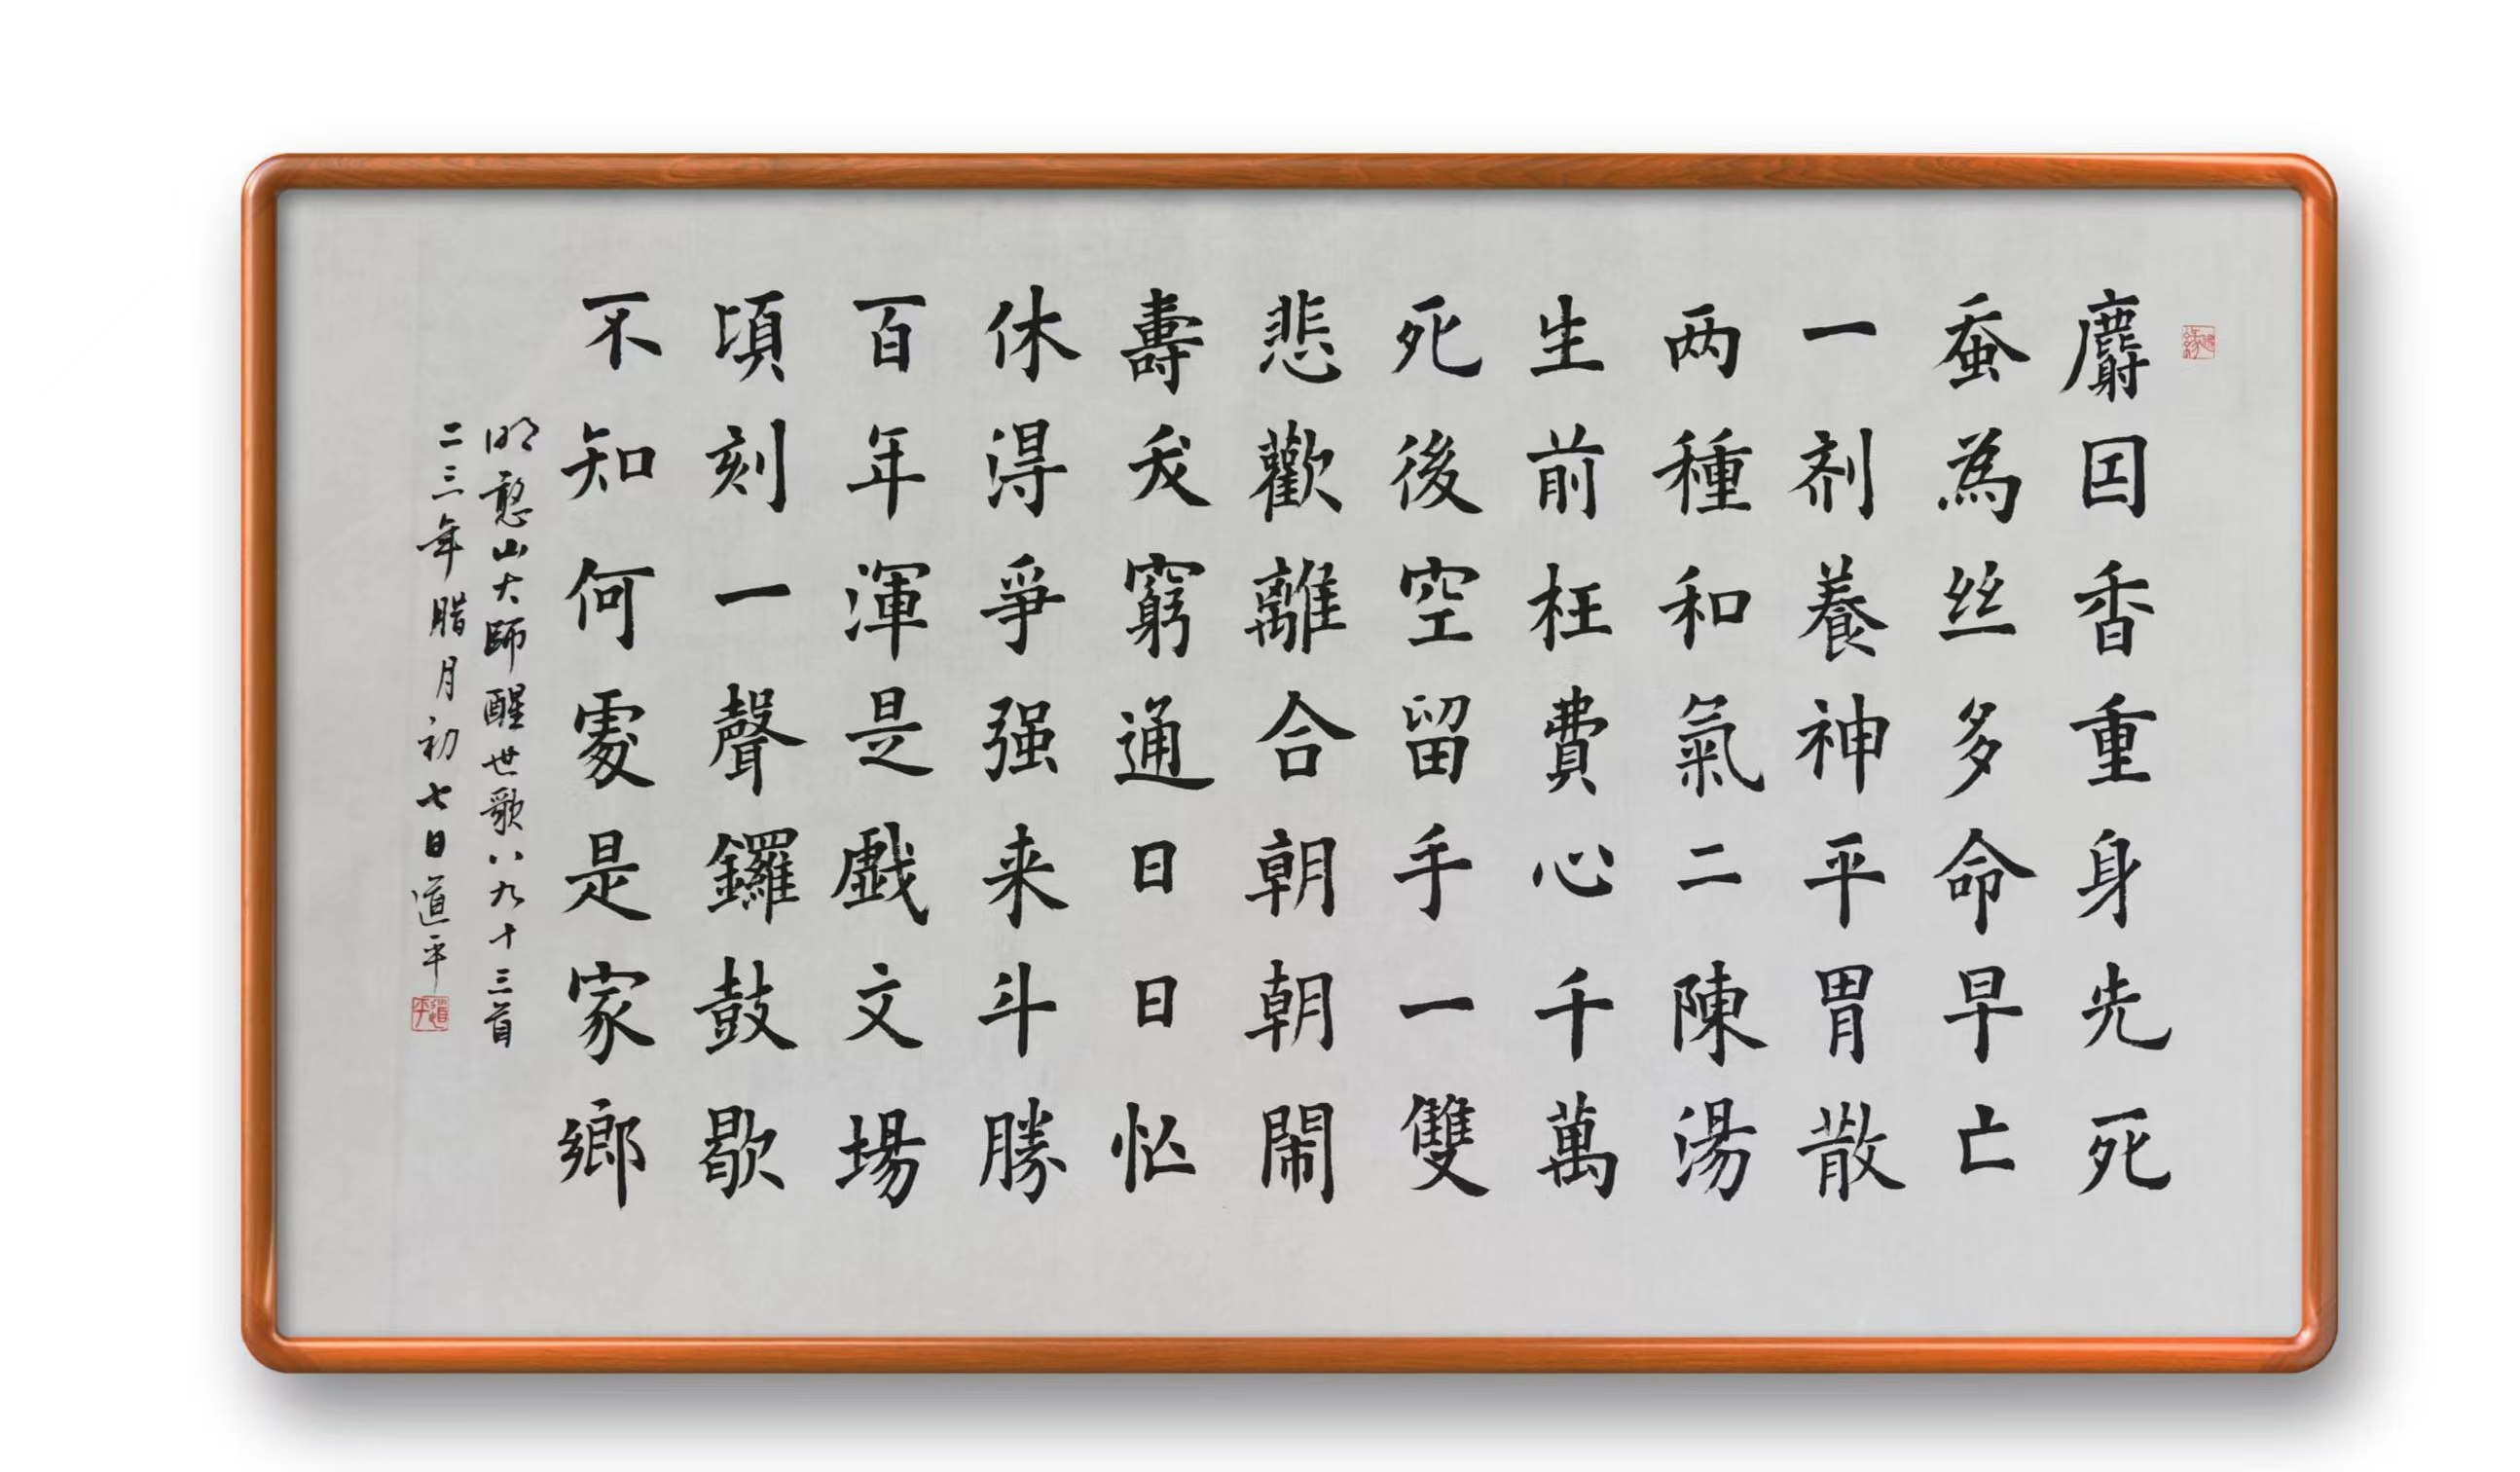 麝囙香重身先死
蚕為丝多命早亡
一剂養神平胃散
两種和氣二陳湯
生前枉費心千萬
死後空留手一雙
悲歡離合朝朝鬧
壽夭窮通日日忙
休得爭强来斗勝
百年渾是戯文場
頃刻一聲鑼鼓歇
不知何處是家鄉
明憨山大師醒世歌八九十三首
二三年腊月初七日道平
道平